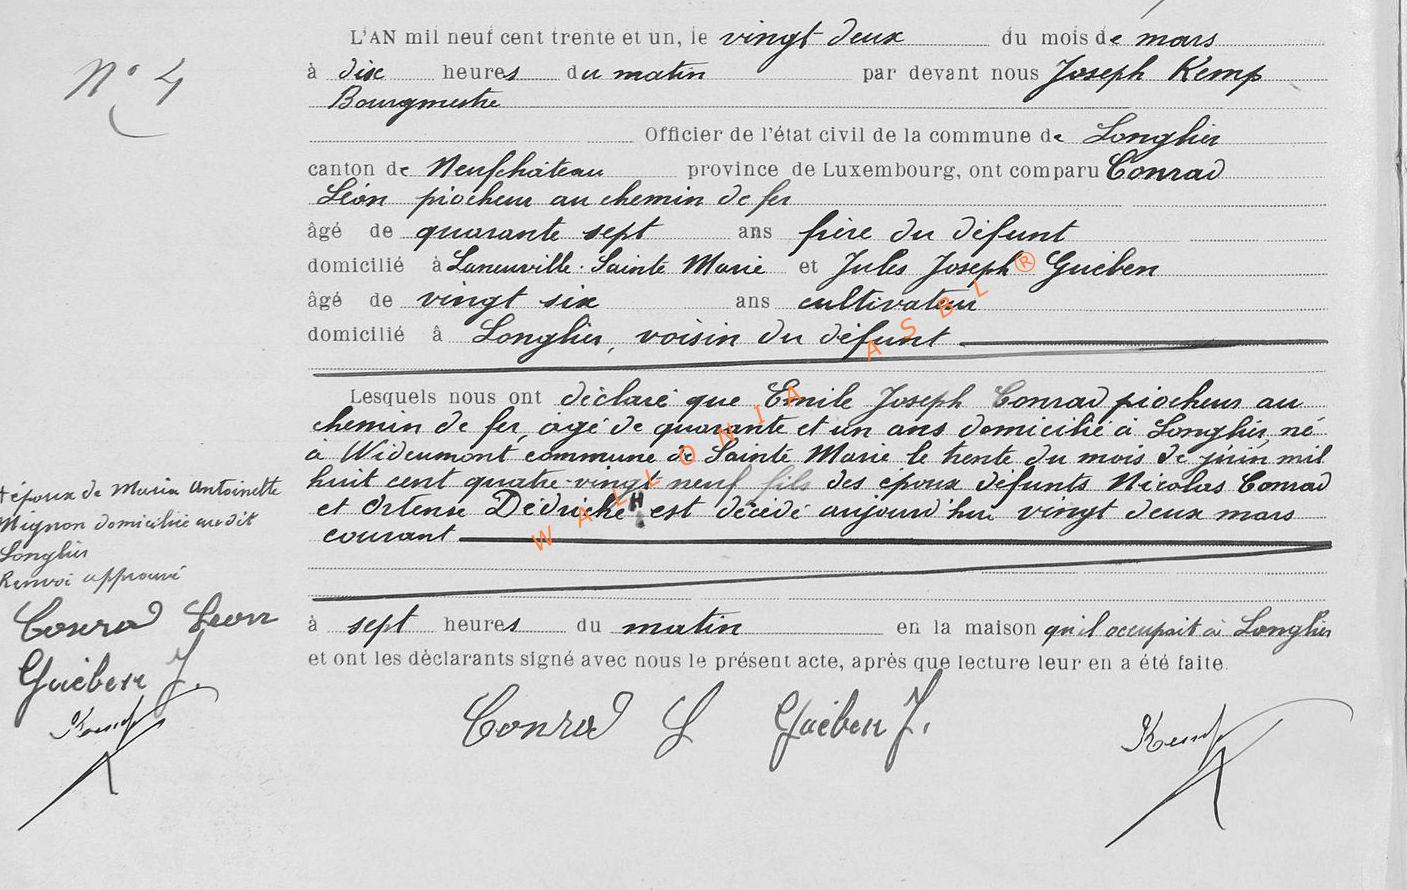 L'AN mil neuf cent trente et un, le vingt deux du mois de mars
N° 4
à dix heures du matin par devant nous Joseph Kemp
Bourgmestre
Officier de l'état civil de la commune de Longlier
canton de Neufchâteau province de Luxembourg, ont comparu Conrad
Léon piocheur au chemin de fer
âgé de quarante sept ans frère du défunt
domicilié à Laneuville-Sainte Marie et Jules Joseph Guében
âgé de vingt six ans cultivateur
domicilié à Longlier, voisin du défunt
Lesquels nous ont déclaré que Emile Joseph Conrad piocheur au
chemin de fer, âgé de quarante et un ans domicilié à Longlier, né
à Wideumont commune de Sainte Marie le trente du mois de juin mil
huit cent quatre-vingt neuf fils des époux défunts Nicolas Conrad
et Ortense Dédriche H est décédé aujourd'hui vingt deux mars
courant
à sept heures du matin en la maison qu'il occupait à Longlier
et ont les déclarants signé avec nous le présent acte, après que lecture leur en a été faite.
+ époux de Maria Antoinette
Mignon domiciliée audit
Longlier
Renvoi approuvé
Conrad Leon
Guében J.
Kemp
Conrad L Guében J. Kemp
WALLONIA ASBL ®